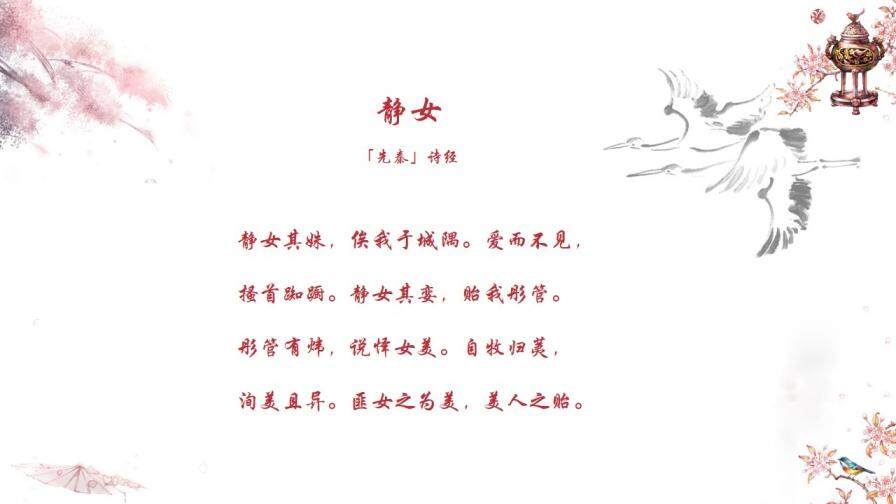 静女
「先秦」诗经
静女其姝，俟我于城隅。爱而不见，
搔首踟蹰。静女其娈，贻我彤管。
彤管有炜，说怿女美。自牧归荑，
洵美且异。匪女之为美，美人之贻。